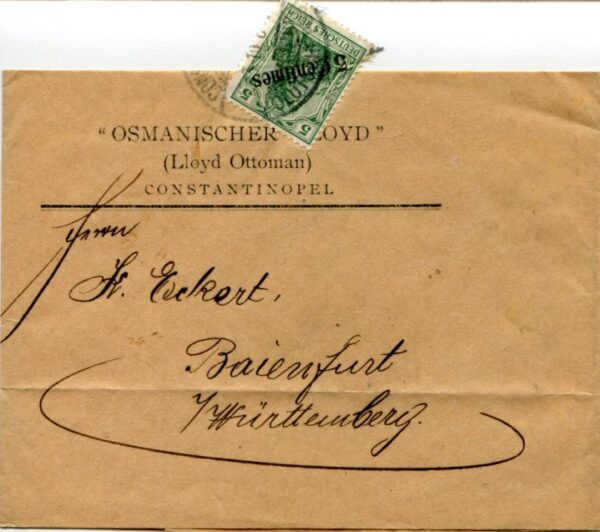 DEUTSCHES REICH
5 Centimes
5 5
"OSMANISCHER LLOYD"
(Lloyd Ottoman)
CONSTANTINOPEL
Herrn
Fr. Eckert,
Baienfurt
/Württemberg.